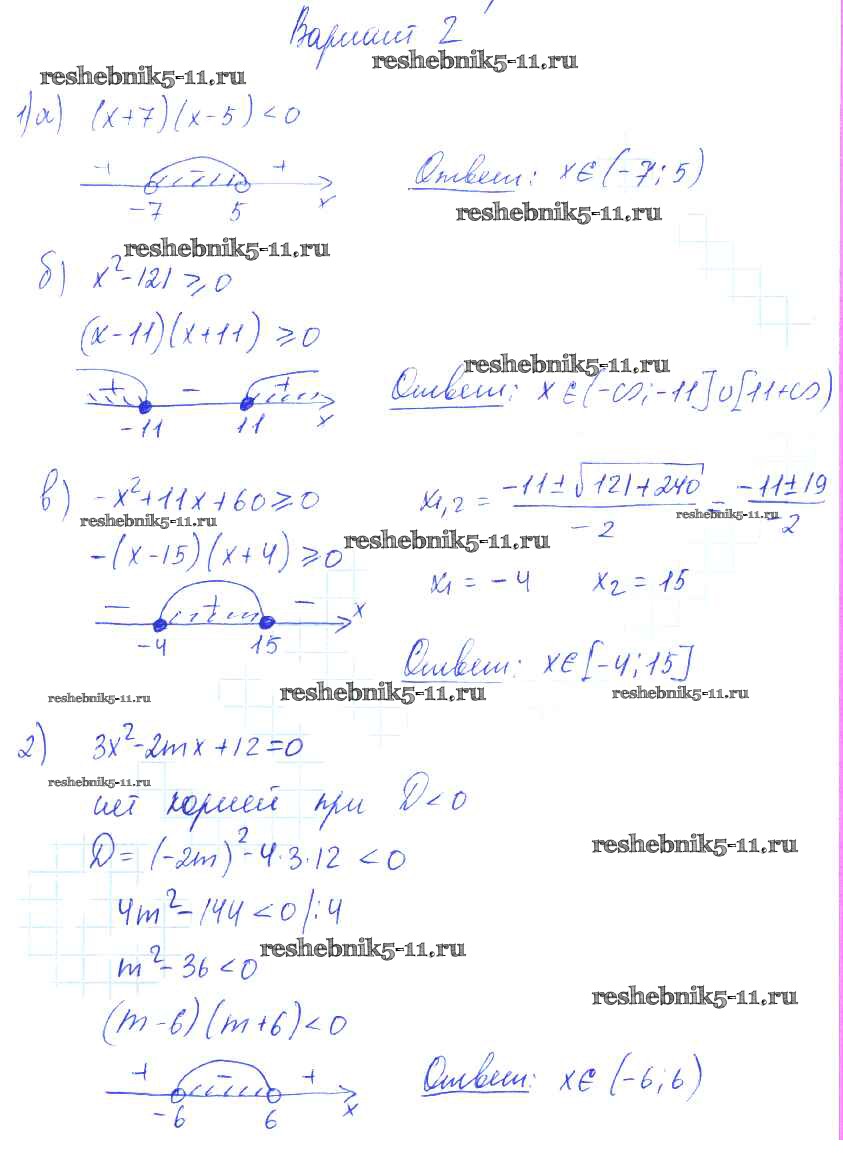 Вариант 2
reshebnik5-11.ru reshebnik5-11.ru
1) а) (x+7)(x-5)<0
+ - + x
-7 5
Ответ: x∈(-7;5)
reshebnik5-11.ru
reshebnik5-11.ru
б) x²-121≥0
(x-11)(x+11)≥0
reshebnik5-11.ru
+ - + x
-11 11
Ответ: x∈(-∞;-11]∪[11+∞)
в) -x²+11x+60≥0 x1,2 = (-11±√(121+240))/(-2) = (-11±19)/(-2)
reshebnik5-11.ru reshebnik5-11.ru
-(x-15)(x+4)≥0 reshebnik5-11.ru
x1=-4 x2=15
- + - x
-4 15
Ответ: x∈[-4;15]
reshebnik5-11.ru reshebnik5-11.ru reshebnik5-11.ru
2) 3x²-2mx+12=0
reshebnik5-11.ru
нет корней при D<0
reshebnik5-11.ru
D=(-2m)²-4·3·12<0
4m²-144<0 |:4
reshebnik5-11.ru
m²-36<0
reshebnik5-11.ru
(m-6)(m+6)<0
+ - + x
-6 6
Ответ: x∈(-6;6)